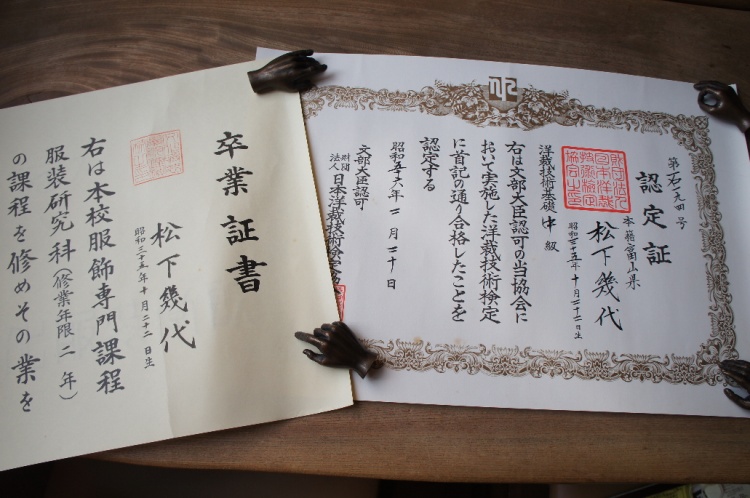 認定証
本籍富山県
松下幾代
昭和三十五年十月二十二日生
洋裁技術基礎中級
右は文部大臣認可の当協会に
おいて実施した洋裁技術検定
に首記の通り合格したことを
認定する
昭和五十六年二月二十日
文部大臣認可
財団法人日本洋裁技術検定協
卒業証書
松下幾代
昭和三十五年十月二十二日生
右は本校服飾専門課程
服装研究科(修業年限二年)
の課程を修めその業を